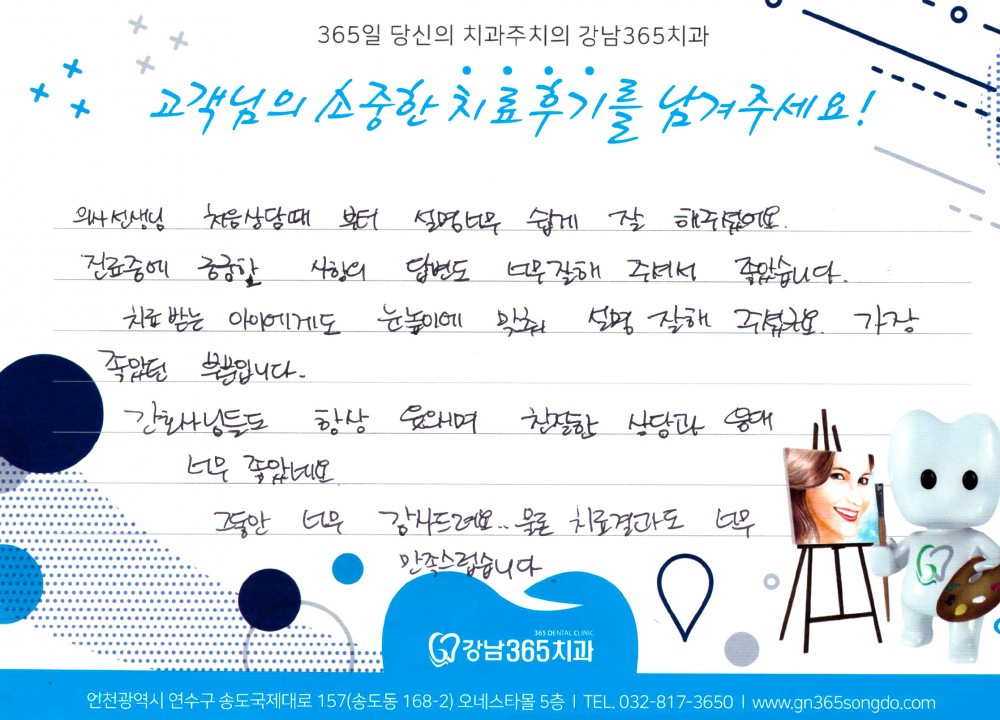 365일 당신의 치과주치의 강남365치과
고객님의 소중한 치료후기를 남겨주세요!
의사선생님 처음상담때 부터 설명너무 쉽게 잘 해주셨어요.
진료중에 궁금한 사항의 답변도 너무잘해 주셔서 좋았습니다.
치료 받는 아이에게도 눈높이에 맞춰 설명 잘해 주셨구요. 가장
좋았던 부분입니다.
간호사님들도 항상 웃으며 친절한 상담과 응대
너무 좋았네요.
그동안 너무 감사드려요.. 물론 치료결과도 너무
만족스럽습니다
365 DENTAL CLINIC
강남365치과
인천광역시 연수구 송도국제대로 157(송도동 168-2) 오네스타몰 5층 | TEL. 032-817-3650 | www.gn365songdo.com